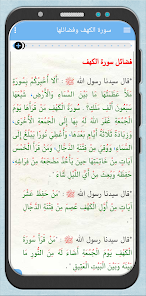 سورة الكهف وفضائلها
فضائل سورة الكهف
"قال سيدنا رسول الله ﷺ : "أَلَا أُخْبِرُكُمْ بِسُورَةٍ
مَلَأَ عَظَمَتُهَا مَا بَيْنَ السَّمَاءِ وَالْأَرْضِ، شَيَّعَهَا
سَبْعُونَ أَلْفَ مَلَكٍ؟، سُورَةُ الْكَهْفِ مَنْ قَرَأَهَا يَوْمَ
الْجُمُعَةِ غَفَرَ اللهُ لَهُ بِهَا إِلَى الْجُمُعَةِ الْأُخْرَى،
وَزِيَادَةُ ثَلَاثَةِ أَيَّامٍ بَعْدَهَا، وَأُعْطِيَ نُورًا يَبْلُغُ إِلَى
السَّمَاءِ، وَوُقِيَ مِنْ فِتْنَةِ الدَّجَّالِ، وَمَنْ قَرَأَ الْخَمْسَ
آيَاتٍ مِنْ خَاتِمَتِهَا حِينَ يَأْخُذُ مَضْجَعَهُ مِنْ فِرَاشِهِ،
حُفِظَ وَبُعِثَ مِنْ أَيِّ اللَّيْلِ شَاءَ".
"قال سيدنا رسول الله ﷺ : "مَنْ حَفِظَ عَشْرَ
آيَاتٍ مِنْ أَوَّلِ سُورَةِ الْكَهْفِ عُصِمَ مِنْ فِتْنَةِ الدَّجَّالِ
"قال سيدنا رسول الله ﷺ : "مَنْ قَرَأَ سُورَةَ
الْكَهْفِ يَوْمَ الْجُمُعَةِ أَضَاءَ لَهُ مِنَ النُّورِ مَا
بَيْنَهُ وَبَيْنَ الْبَيْتِ الْعَتِيقِ".